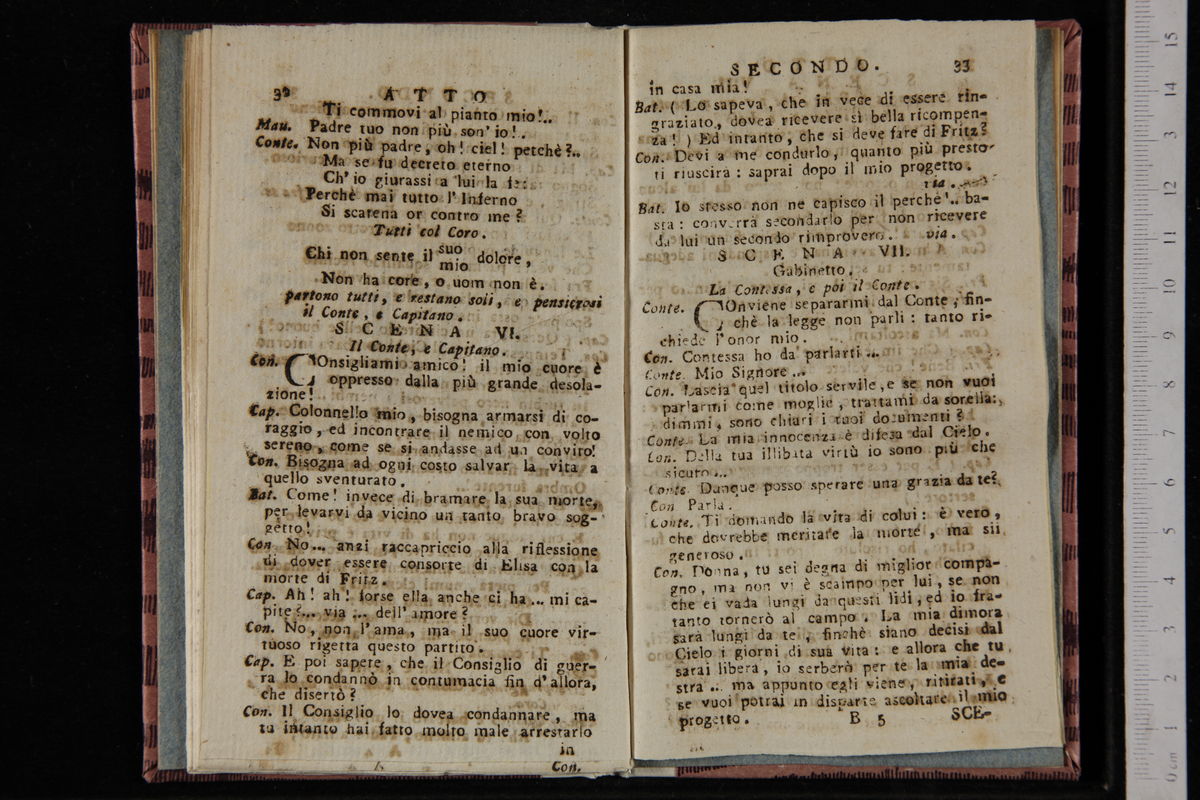 32 ATTO
Ti commovi al pianto mio!..
Mau. Padre tuo non più son' io!.
Conte. Non più padre, oh! ciel! perchè?..
Ma se fu decreto eterno
Ch' io giurassi a lui la
Perchè mai tutto l' Inferno
Si scatena or contro me?
Tutti col Coro.
Chi non sente il suo dolore,
mio
Non ha core, o uom non è.
partono tutti, e restano soli, e pensierosi
il Conte, e Capitano.
SCENA VI.
Il Conte, e Capitano.
Con. COnsigliamio amico! il mio cuore è
oppresso dalla più grande desola-
zione!
Cap. Colonnello mio, bisogna armarsi di co-
raggio, ed incontrare il nemico con volto
sereno, come se si andasse ad un convito!
Con. Bisogna ad ogni costo salvar la vita a
quello sventurato.
Bat. Come! invece di bramare la sua morte,
per levarvi da vicino un tanto bravo sog-
getto!
Con No... anzi raccapriccio alla riflessione
di dover essere consorte di Elisa con la
morte di Fritz.
Cap. Ah! ah! forse ella anche ci ha... mi ca-
pite?... via ;.. dell' amore?
Con. No, non l'ama, ma il suo cuore vir-
tuoso rigetta questo partito.
Cap. E poi sapete, che il Consiglio di guer-
ra lo condannò in contumacia fin d'allora,
che disertò?
Con. Il Consiglio lo dovea condannare, ma
tu intanto hai fatto molto male arrestarlo
in
Con.
SECONDO. 33
in casa mia!
Bat. ( Lo sapeva, che in vece di essere rin-
graziato, dovea ricevere sì bella ricompen-
za! ) Ed intanto, che si deve fare di Fritz?
Con. Devi a me condurlo, quanto più presto
ti riuscirà : saprai dopo il mio progetto.
via.
Bat. Io stesso non ne capisco il perchè!.. ba-
sta : converrà secondarlo per non ricevere
da lui un secondo rimprovero. via.
SCENA VII.
Gabinetto.
La Contessa, e poi il Conte.
Conte. COnviene separarmi dal Conte, fin-
chè la legge non parli : tanto ri-
chiede l'onor mio.
Con. Contessa ho da parlarti...
Conte. Mio Signore...
Con. Lascia quel titolo servile, e se non vuoi
parlarmi come moglie, trattami da sorella:
dimmi, sono chiari i tuoi documenti?
Conte. La mia innocenza è difesa dal Cielo.
Con. Della tua illibata virtù io sono più che
sicuro...
Conte. Dunque posso sperare una grazia da te?
Con Parla.
Conte. Ti domando la vita di colui : è vero,
che dovrebbe meritare la morte, ma sii
generoso.
Con. Donna, tu sei degna di miglior compa-
gno, ma non vi è scampo per lui, se non
che ei vada lungi da questi lidi, ed io fra-
tanto tornerò al campo. La mia dimora
sarà lungi da te, finchè siano decisi dal
Cielo i giorni di sua vita : e allora che tu
sarai libera, io serberò per te la mia de-
stra... ma appunto egli viene, ritirati, e
se vuoi potrai in disparte ascoltare il mio
progetto. B 5 SCE-
0 cm 1 2 3 4 5 6 7 8 9 10 11 12 13 14 15